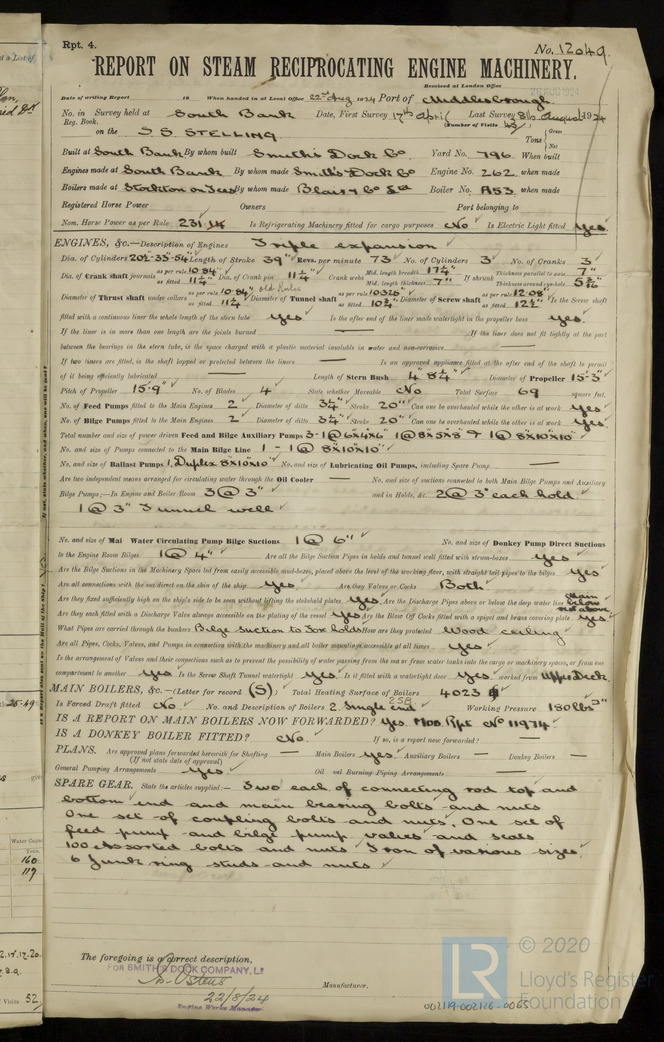 Rpt. 4.
No. 12049.
REPORT ON STEAM RECIPROCATING ENGINE MACHINERY.
Received at London Office
Date of writing Report 19 When handed in at Local Office 22nd Aug 1924 Port of Middlesbrough
No. in Survey held at South Bank Date, First Survey 17th April Last Survey 8th August 1924
Reg. Book. (Number of Visits
on the S.S. STELLING Tons Gross Net
Built at South Bank By whom built Smith's Dock Co Yard No. 796 When built
Engines made at South Bank By whom made Smith's Dock Co Engine No. 262 when made
Boilers made at Stockton on Tees By whom made Blair & Co Ltd Boiler No. A53 when made
Registered Horse Power Owners Port belonging to
Nom. Horse Power as per Rule 231.14 Is Refrigerating Machinery fitted for cargo purposes No Is Electric Light fitted Yes
ENGINES, &c.—Description of Engines Triple expansion
Dia. of Cylinders 20½-33-54 Length of Stroke 39" Revs. per minute 73 No. of Cylinders 3 No. of Cranks 3
Dia. of Crank shaft journals as per rule 10.84" as fitted 11¼" Dia. of Crank pin 11¼" Crank webs Mid. length breadth 17¼" Mid. length thickness 7" If shrunk Thickness parallel to axis 7" Thickness around eye-hole
Diameter of Thrust shaft under collars as per rule 10.84" as fitted 11¼ old Rules Diameter of Tunnel shaft as per rule 10.326" as fitted 10¾ Diameter of Screw shaft as per rule 12.08" as fitted 12½" Is the Screw shaft
fitted with a continuous liner the whole length of the stern tube Yes Is the after end of the liner made watertight in the propeller boss yes.
If the liner is in more than one length are the joints burned — If the liner does not fit tightly at the part
between the bearings in the stern tube, is the space charged with a plastic material insoluble in water and non-corrosive —
If two liners are fitted, is the shaft lapped or protected between the liners — Is an approved appliance fitted at the after end of the shaft to permit
of it being efficiently lubricated — Length of Stern Bush 4' 8¼" Diameter of Propeller 15'-3"
Pitch of Propeller 15'-9" No. of Blades 4 State whether Moveable No Total Surface 69 square feet.
No. of Feed Pumps fitted to the Main Engines 2 Diameter of ditto 3¼" Stroke 20" Can one be overhauled while the other is at work Yes
No. of Bilge Pumps fitted to the Main Engines 2 Diameter of ditto 3¼" Stroke 20" Can one be overhauled while the other is at work Yes
Total number and size of power driven Feed and Bilge Auxiliary Pumps 3-1@6x4x6" 1@8x5x8" & 1@8x10x10"
No. and size of Pumps connected to the Main Bilge Line 1 - 1@ 8"x10"x10"
No. and size of Ballast Pumps 1, Duplex 8"x10"x10" No. and size of Lubricating Oil Pumps, including Spare Pump —
Are two independent means arranged for circulating water through the Oil Cooler — No. and size of suctions connected to both Main Bilge Pumps and Auxiliary
Bilge Pumps;—In Engine and Boiler Room 3 @ 3" and in Holds, &c. 2 @ 3" each hold.
1 @ 3" Tunnel well
No. and size of Mai Water Circulating Pump Bilge Suctions 1 @ 6" No. and size of Donkey Pump Direct Suctions
to the Engine Room Bilges 1 @ 4" Are all the Bilge Suction Pipes in holds and tunnel well fitted with strum-boxes yes
Are the Bilge Suctions in the Machinery Space led from easily accessible mud-boxes, placed above the level of the working floor, with straight tail pipes to the bilges yes
Are all connections with the sea direct on the skin of the ship yes Are they Valves or Cocks Both
Are they fixed sufficiently high on the ship's side to be seen without lifting the stokehold plates yes Are the Discharge Pipes above or below the deep water line Main below rest above
Are they each fitted with a Discharge Valve always accessible on the plating of the vessel Yes Are the Blow Off Cocks fitted with a spigot and brass covering plate yes
What Pipes are carried through the bunkers Bilge suction to Fore holds How are they protected Wood ceiling
Are all Pipes, Cocks, Valves, and Pumps in connection with the machinery and all boiler mountings accessible at all times Yes
Is the arrangement of Valves and their connections such as to prevent the possibility of water passing from the sea or from water tanks into the cargo or machinery spaces, or from one
compartment to another Yes Is the Screw Shaft Tunnel watertight Yes Is it fitted with a watertight door Yes worked from Upper Deck
MAIN BOILERS, &c.—(Letter for record (S) Total Heating Surface of Boilers 4023
Is Forced Draft fitted No No. and Description of Boilers 2 Single end 2SB Working Pressure 180 lbs □"
IS A REPORT ON MAIN BOILERS NOW FORWARDED? Yes. Mbo Rpt No 11974.
IS A DONKEY BOILER FITTED? No. If so, is a report now forwarded? —
PLANS. Are approved plans forwarded herewith for Shafting — Main Boilers Yes Auxiliary Boilers — Donkey Boilers —
(If not state date of approval)
General Pumping Arrangements Yes Oil uel Burning Piping Arrangements —
SPARE GEAR. State the articles supplied:— Two each of connecting rod top and
bottom end and main bearing bolts and nuts
One set of coupling bolts and nuts. One set of
feed pump and bilge pump valves and seats
100 Assorted bolts and nuts Iron of various sizes
6 Junk ring studs and nuts
The foregoing is a correct description,
FOR SMITH'S DOCK COMPANY, Ld
Manufacturer.
22/8/24
Engine Works Manager
002119-002126-0065
LR
© 2020
Lloyd's Register
Foundation
Water Capacity
Tons.
160
119
Visits 52